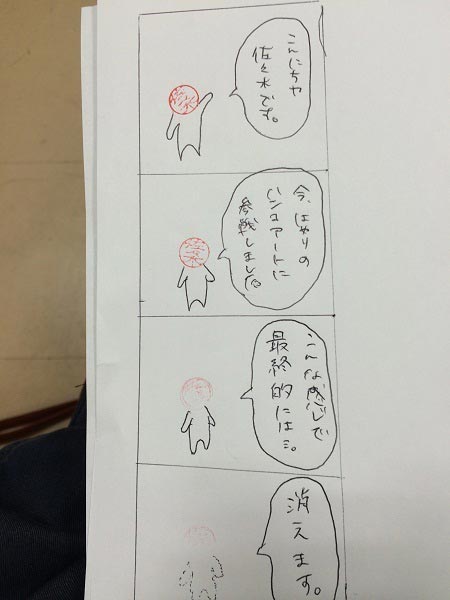 こんにちわ
佐々木です。
今、はやりの
ハンコアートに
参戦しました。
こんな感じで
最終的には…。
消えます。